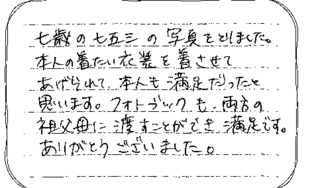 七歳の七五三の写真をとりました。
本人の着たい衣装を着させて
あげられて、本人も満足だったと
思います。フォトブックも両方の
祖父母に渡すことができ満足です。
ありがとうございました。